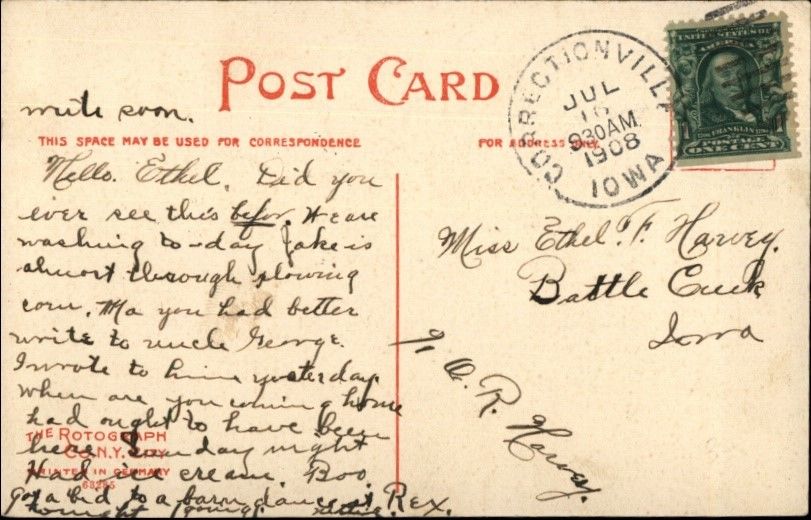 POST CARD
write soon.
THIS SPACE MAY BE USED FOR CORRESPONDENCE
FOR ADDRESS ONLY.
CORRECTIONVILLE
JUL
16
930AM
1908
IOWA
UNITED STATES OF
AMERICA
FRANKLIN
POSTAGE
ONE CENT
Hello. Ethel. Did you
ever see this befor. We are
washing to-day Jake is
almost through plowing
corn. Ma you had better
write to uncle George.
I wrote to him yesterday
when are you coming home
had ought to have been
here Sunday night
Had ice cream. Boo.
Got a bid to a barn dance at Rex.
tonight going.
THE ROTOGRAPH
CO. N.Y. CITY
PRINTED IN GERMANY
Miss Ethel. F. Harvey.
Battle Creek
Iowa
c/o O. R. Harvey.